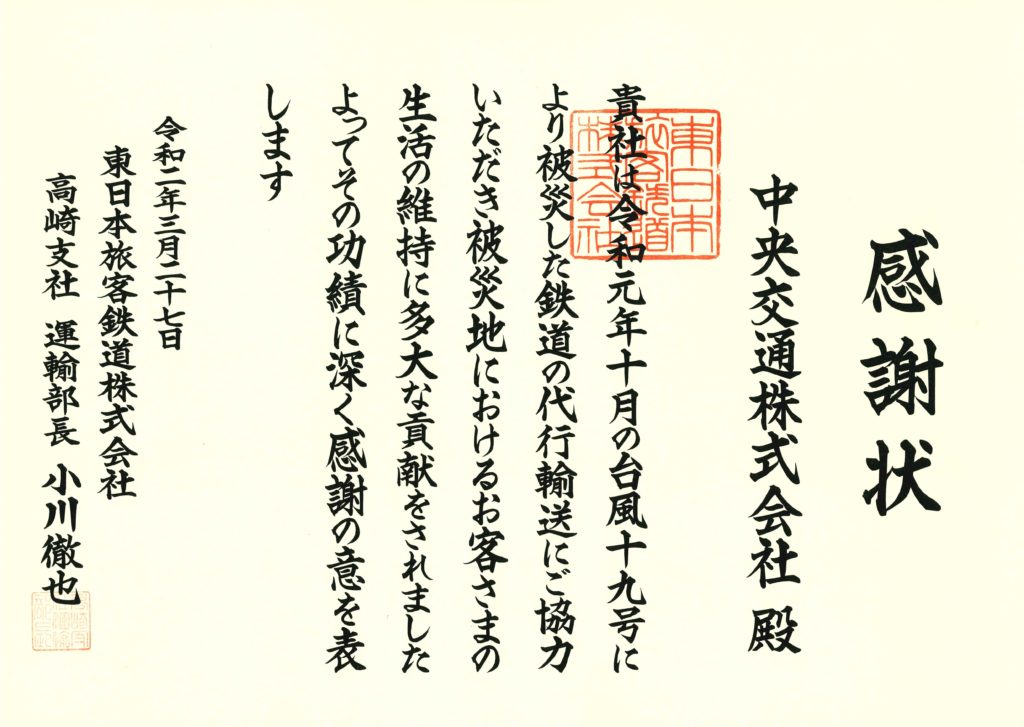 感謝状
中央交通株式会社 殿
貴社は令和元年十月の台風十九号に
より被災した鉄道の代行輸送にご協力
いただき被災地におけるお客さまの
生活の維持に多大な貢献をされました
よってその功績に深く感謝の意を表
します
令和二年三月二十七日
東日本旅客鉄道株式会社
高崎支社 運輸部長 小川徹也
東日本
旅客鉄道
株式会社